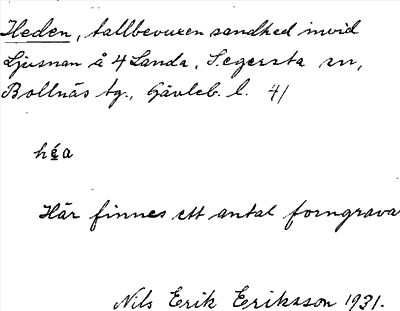 Heden, tallbevuxen sandhed invid
Ljusnan å 4 Landa, Segersta sn,
Bollnäs tg., Gävleb. l. 41
héa
Här finnes ett antal forngrava
Nils Erik Eriksson 1931.